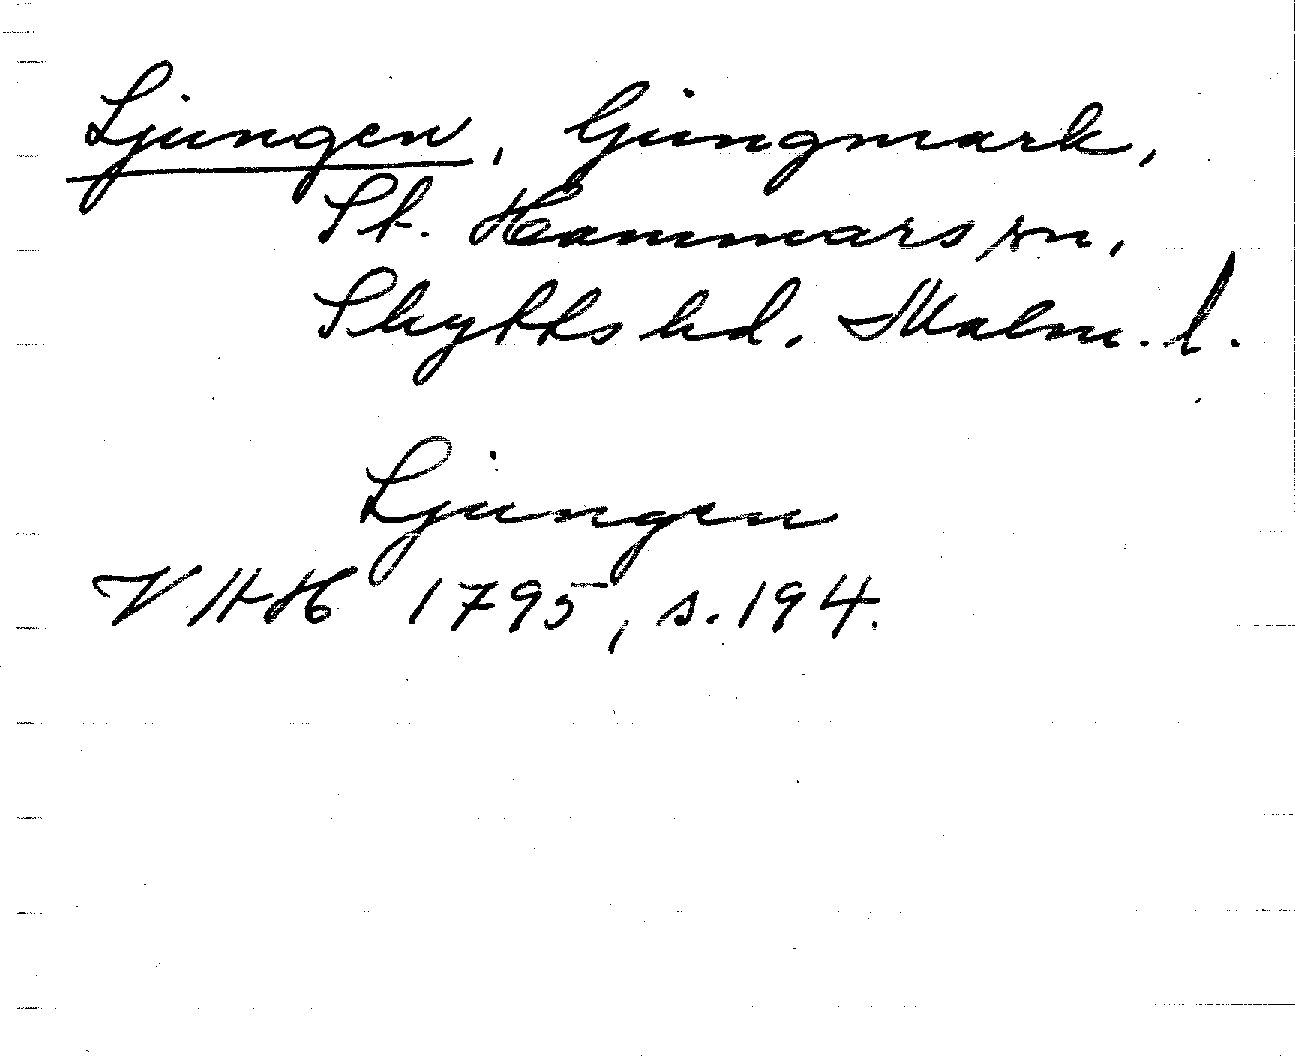 Ljungen, ljungmark,
St. Hammars sn,
Skytts hd. Malm. l.
Ljungen
VHH 1795, s. 194.